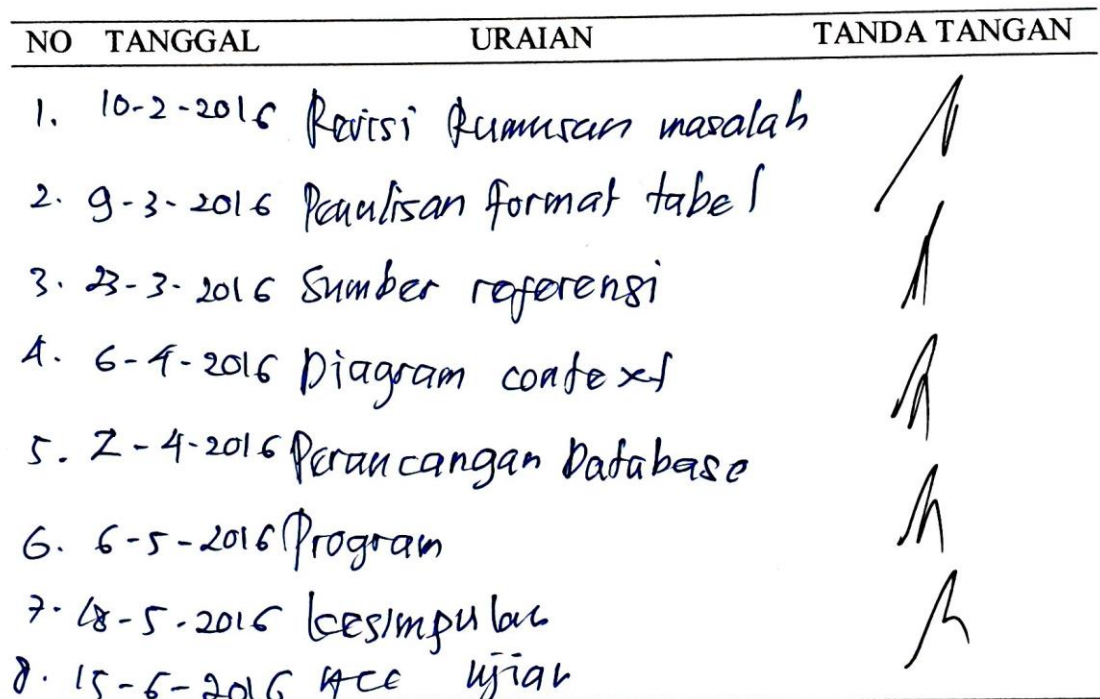 NO TANGGAL URAIAN TANDA TANGAN
1. 10-2-2016 Revisi Rumusan masalah
2. 9-3-2016 Penulisan format tabel
3. 23-3-2016 Sumber referensi
4. 6-4-2016 Diagram context
5. 2-4-2016 Perancangan Database
6. 6-5-2016 Program
7. 18-5-2016 kesimpulan
8. 15-6-2016 ACC Ujian